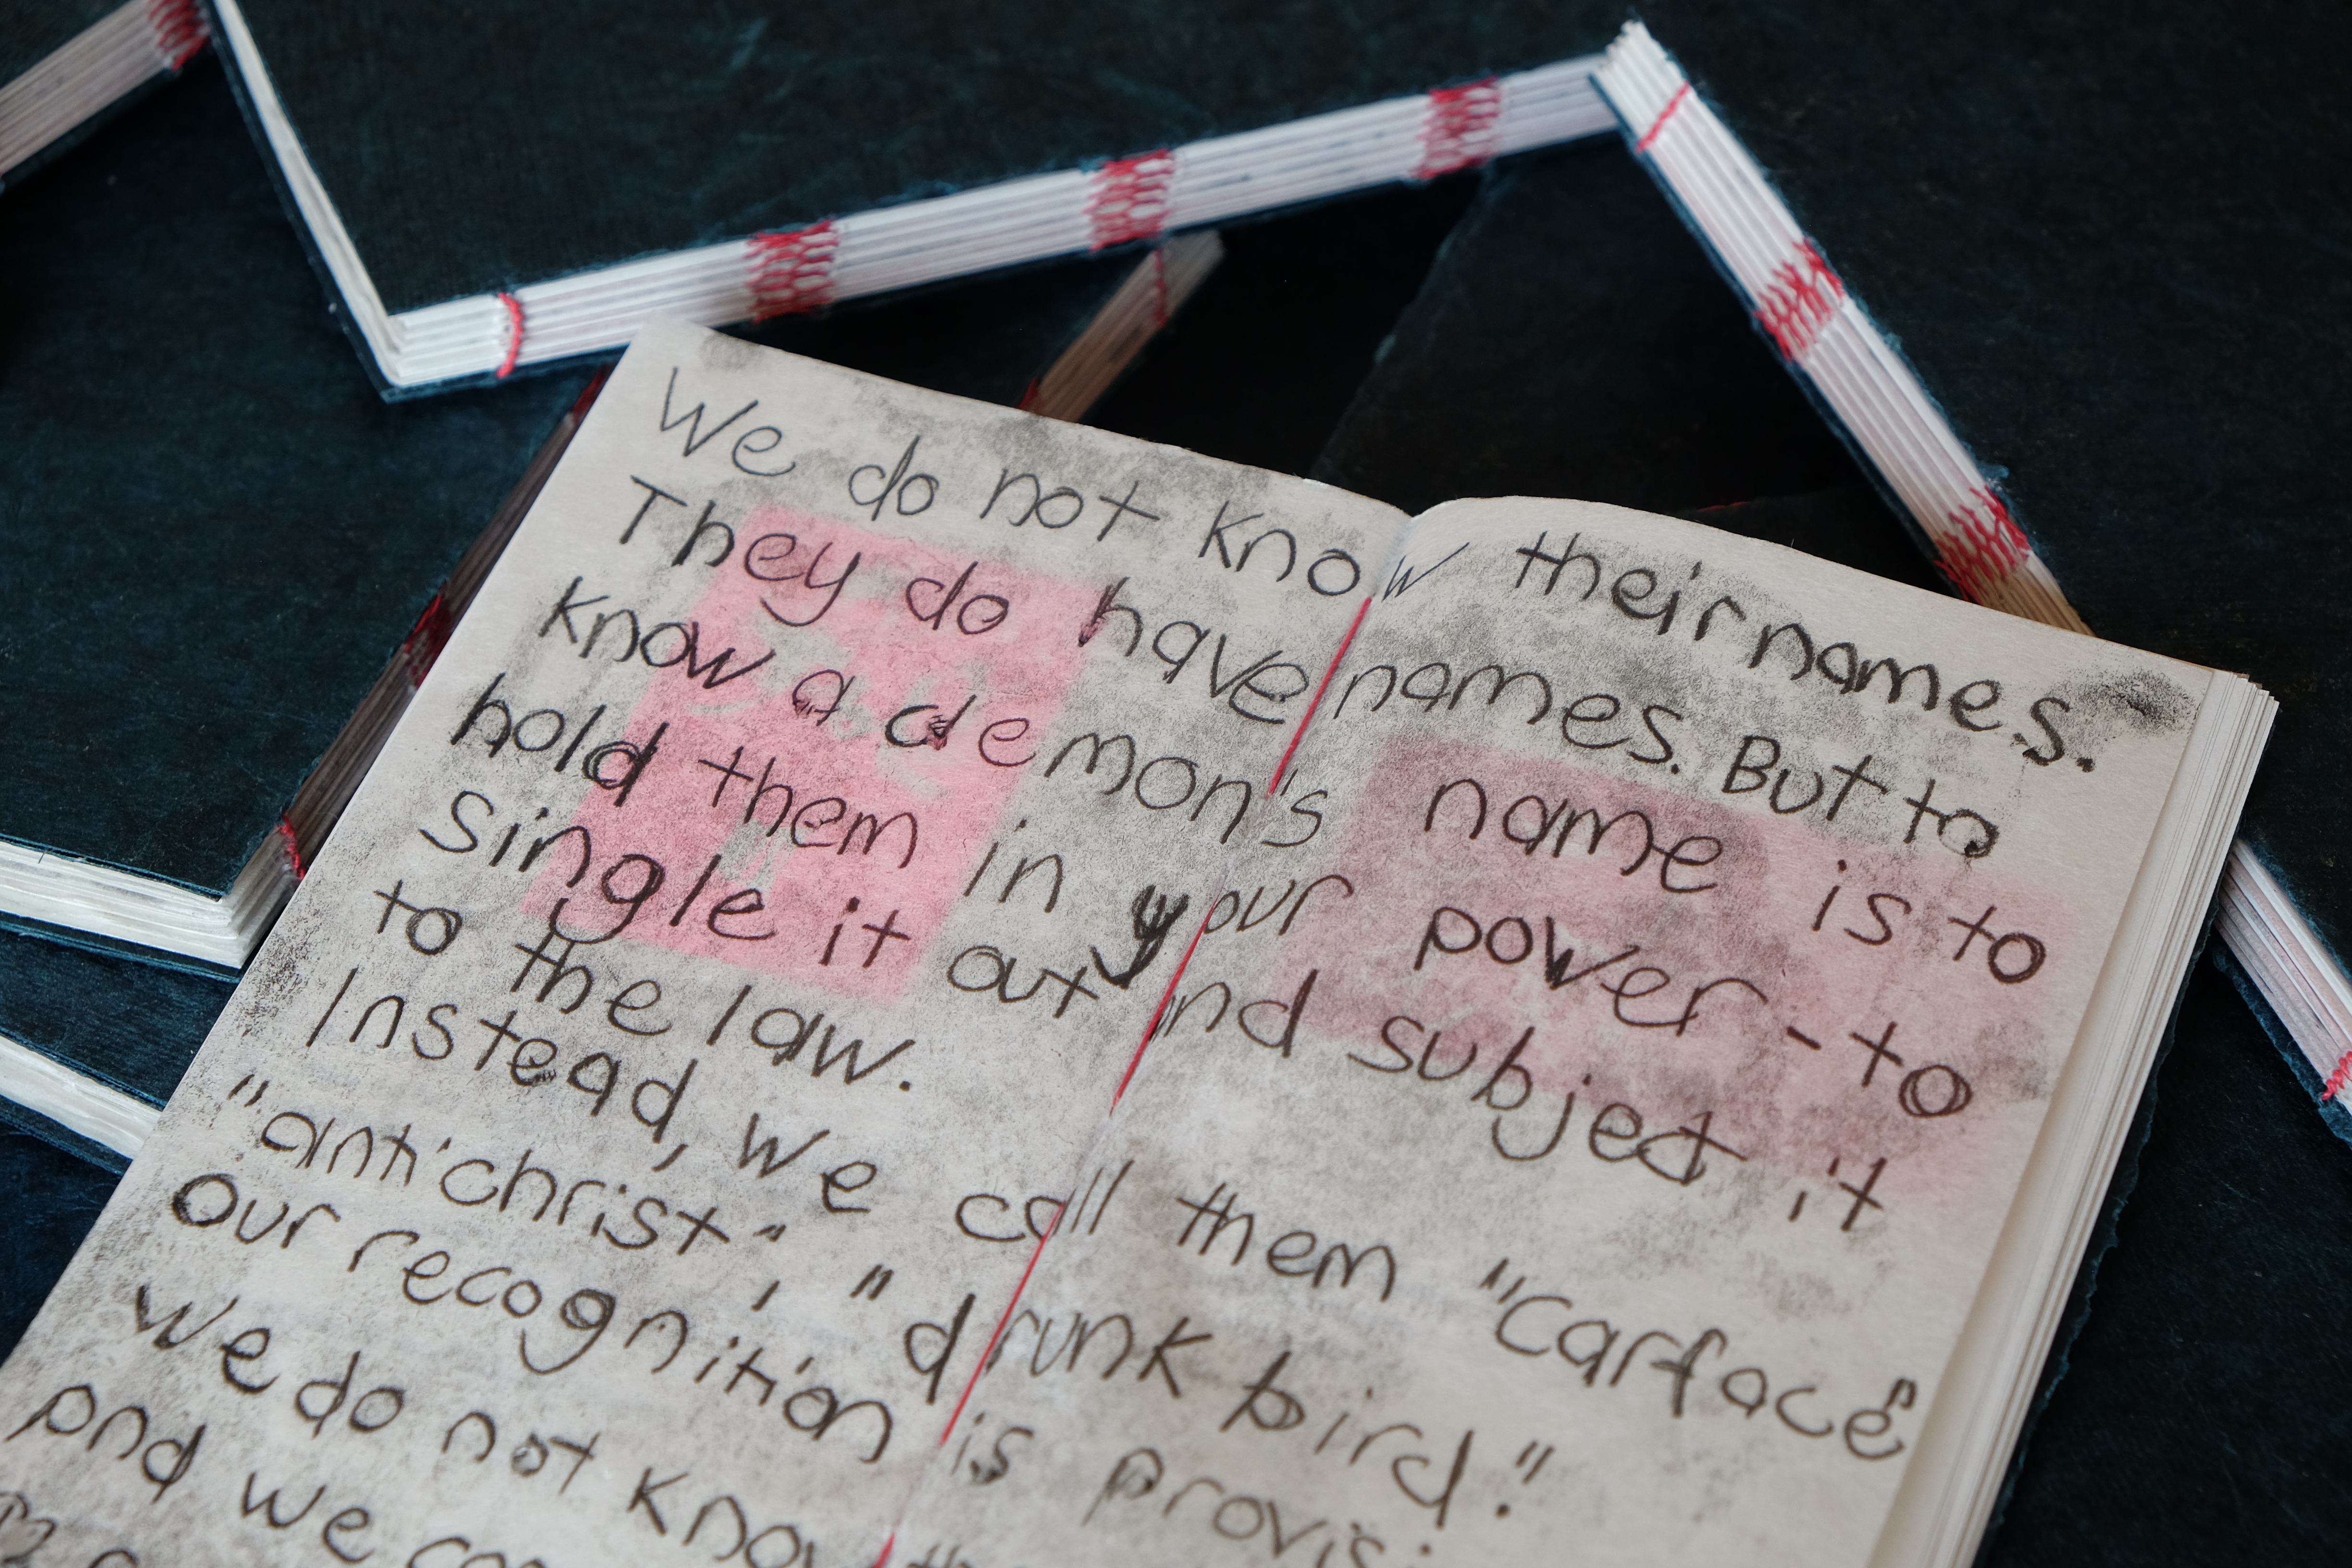 We do not know their names.
They do have names. But to
know a demon's name is to
hold them in your power - to
single it out and subject it
to the law.
Instead, we call them "carface"
"antichrist", "drunk bird."
our recognition is provis
We do not know
and we